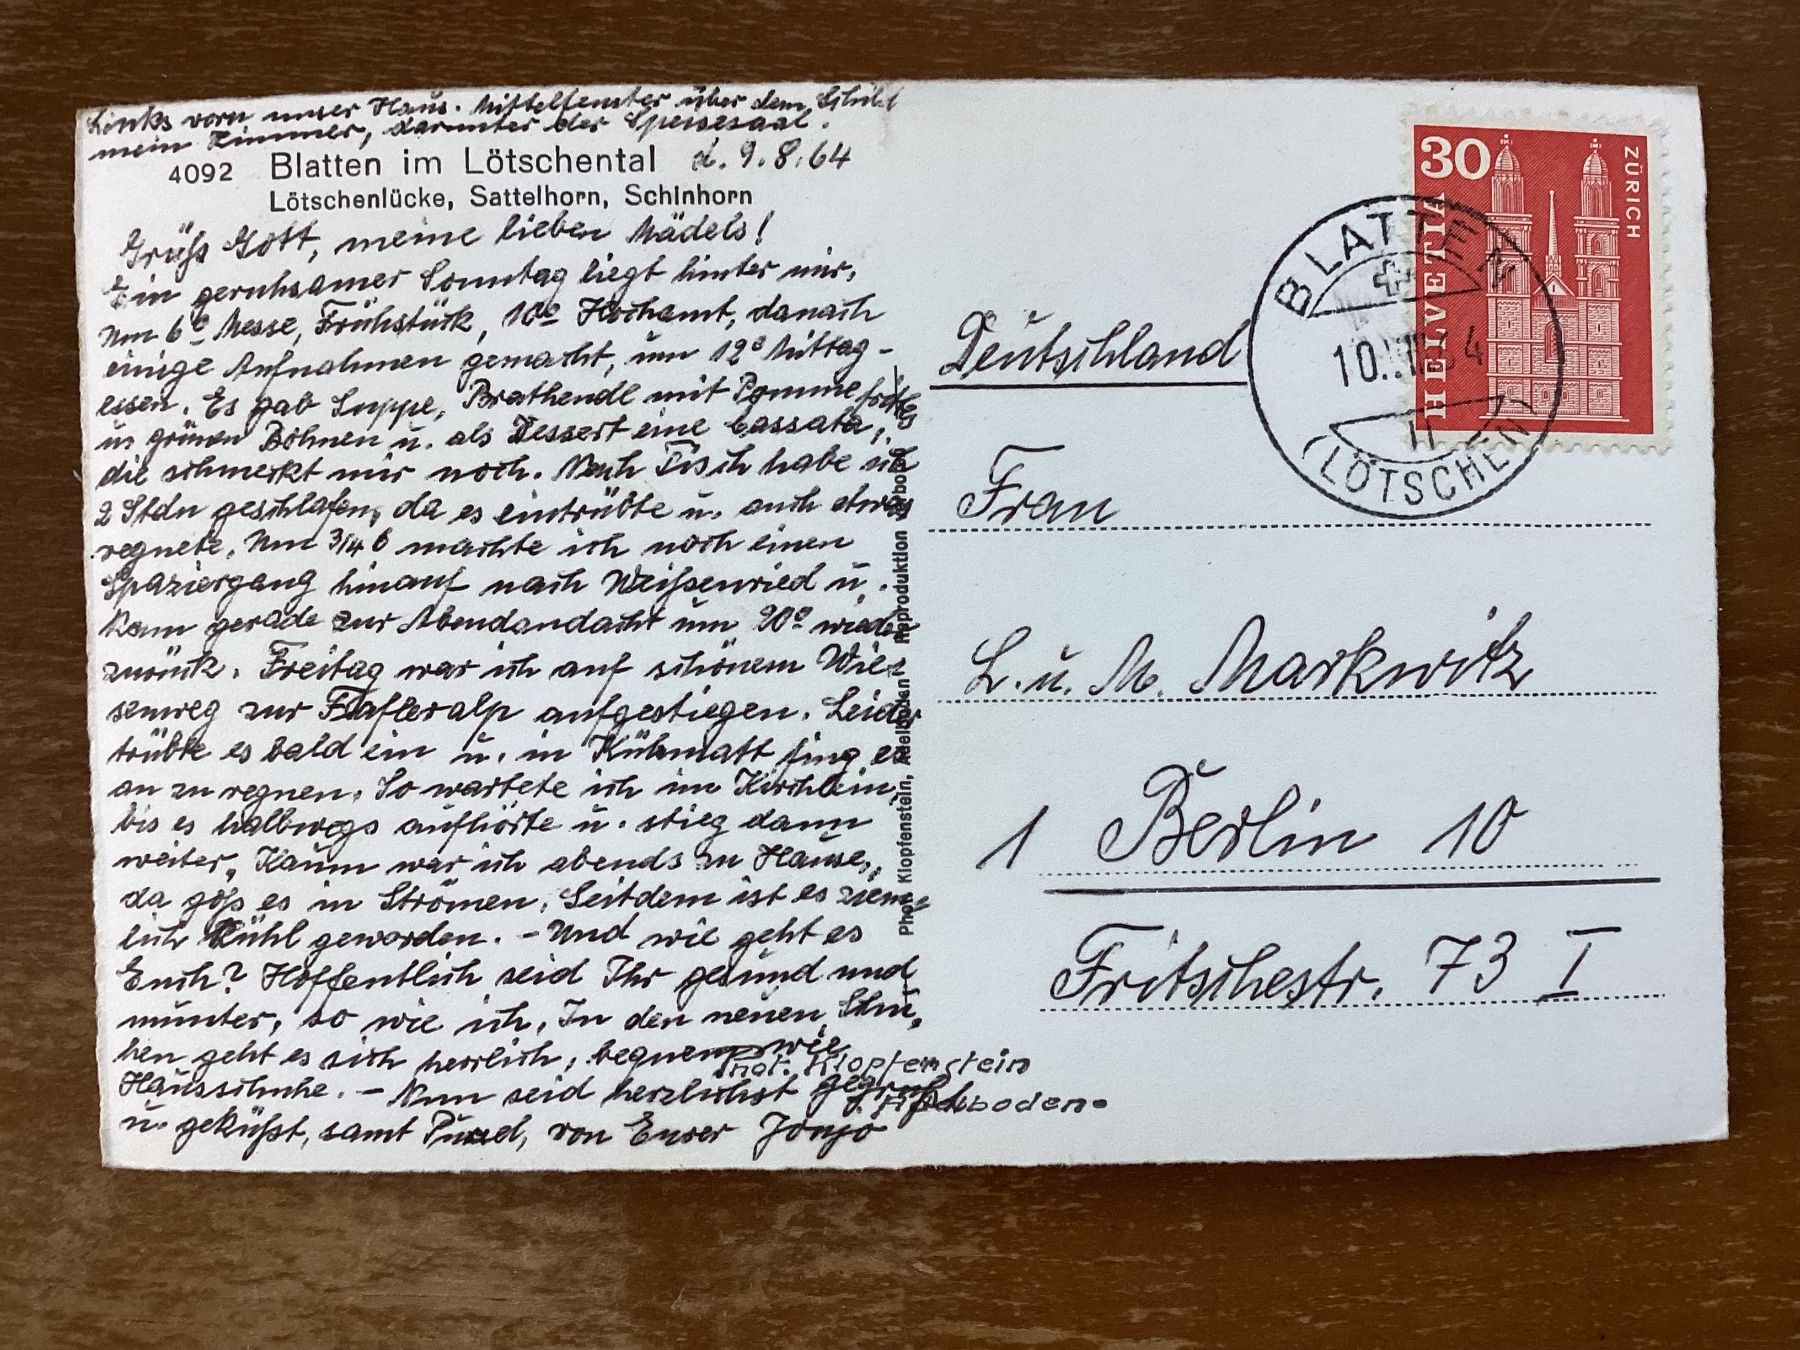 Links vorn unser Haus. Mittelfenster über dem Schild
mein Zimmer, darunter der Speisesaal.
4092 Blatten im Lötschental d. 9.8.64
Lötschenlücke, Sattelhorn, Schinhorn
Grüß Gott, meine lieben Mädels!
Ein geruhsamer Sonntag liegt hinter mir,
Um 6⁰ Messe, Frühstück, 10⁰ Hochamt, danach
einige Aufnahmen gemacht, um 12⁰ Mittag-
essen. Es gab Suppe, Brathendl mit Pomme frites
u. grünen Bohnen u. als Dessert eine Cassata,
die schmeckt mir noch. Nach Tisch habe ich
2 Stdn geschlafen, da es eintrübte u. auch etwas
regnete. Um 3/4 6 machte ich noch einen
Spaziergang hinauf nach Weißenried u.
kam gerade zur Abendandacht um 20⁰ wieder
zurück. Freitag war ich auf schönem Wie-
senweg zur Fafleralp aufgestiegen. Leider
trübte es bald ein u. in Kühmatt fing es
an zu regnen. So wartete ich im Kirchlein,
bis es halbwegs aufhörte u. stieg dann
weiter. Kaum war ich abends zu Hause,
da goß es in Strömen. Seitdem ist es ziem-
lich kühl geworden. - Und wie geht es
Euch? Hoffentlich seid Ihr gesund und
munter, so wie ich. In den neuen Schu-
hen geht es sich herrlich, bequem wie
Hausschuhe. - Nun seid herzlichst gegrüßt
u. geküßt, samt von Eurer
Phot. Klopfenstein
Adelboden
Photo Klopfenstein, Adelboden Reproduktion verboten
30
HELVETIA
ZÜRICH
BLATTEN
10.VIII.64
(LÖTSCHEN)
Deutschland
Frau
L. u. M. Markwitz
1 Berlin 10
Fritschestr. 73 I